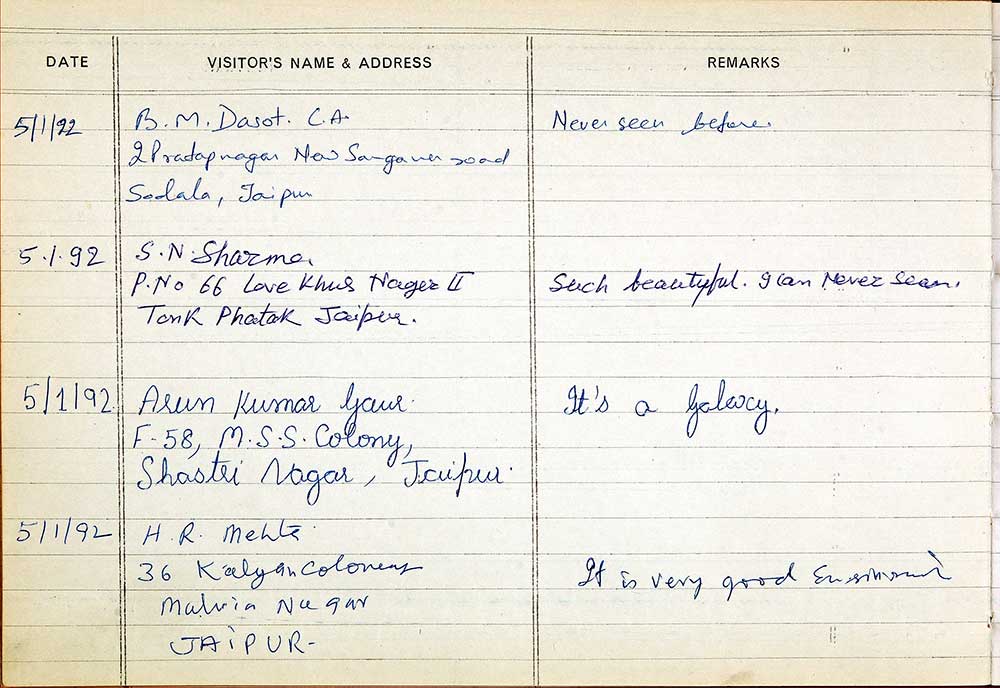 DATE VISITOR'S NAME & ADDRESS REMARKS
5/1/92 B. M. Dasot. C.A. Never seen before.
2 Pradapnagar New Sanganer road
Sodala, Jaipur
5.1.92 S.N. Sharma.
P.No 66 Love Khus Nager II Such beautyful. I can Never Seen.
Tonk Phatak Jaipur.
5/1/92 Arun Kumar Gaur. It's a Galaxcy.
F-58, M.S.S. Colony,
Shastri Nagar, Jaipur.
5/1/92 H. R. Mehta
36 Kalyan Coloney It is very good
Malvia Nagar
JAIPUR-